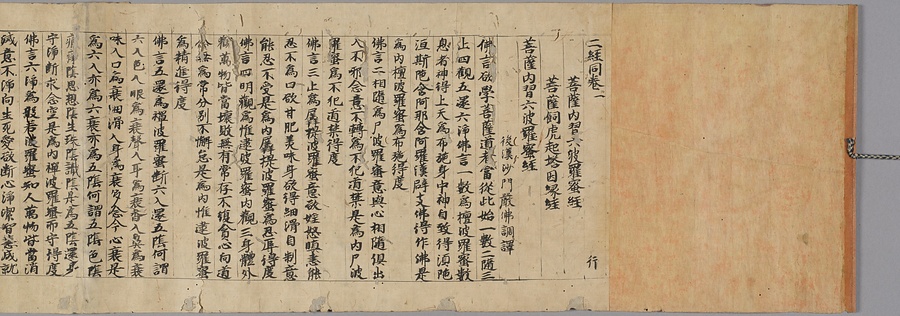 二經同卷一
行
菩薩内習六波羅蜜經
菩薩飼虎起塔因縁經
菩薩内習六波羅蜜經
後漢沙門嚴佛調譯
佛言欲學菩薩道者當從此始一數二隨三
止四觀五還六淨佛言一數為檀波羅蜜數
息者神得上天為布施身中神自致得湏陁
洹斯陁含阿那含阿羅漢辟支佛得作佛是
為内檀波羅蜜為布施得度
佛言二相隨為尸波羅蜜意與心相隨俱出
入不邪念意不轉為不犯道禁是為内尸波
羅蜜為不犯道禁得度
佛言三止為羼提波羅蜜意欲婬怒瞋恚能
忍不為口欲甘肥美味身欲得細滑自制意
能忍不受是為内羼提波羅蜜為忍辱得度
佛言四明觀為惟逮波羅蜜内觀三身體外
觀萬物皆當壞敗無有常存不復貪心向道
念無為常分別不懈怠是為内惟逮波羅蜜
為精進得度
佛言五還為禪波羅蜜断六入還五陰何謂
六入色入眼為衰聲入耳為衰香入鼻為衰
味入口為衰細滑入身為衰多念令心衰是
為六入亦為六衰亦為五陰何謂五陰色陰
痛痒陰思想陰生死陰識陰是為五陰還身
守淨断求念空是為内禪波羅蜜為守得度
佛言六淨為般若波羅蜜知人萬物皆當消
滅意不淨向生死愛欲断心淨潔智慧成就